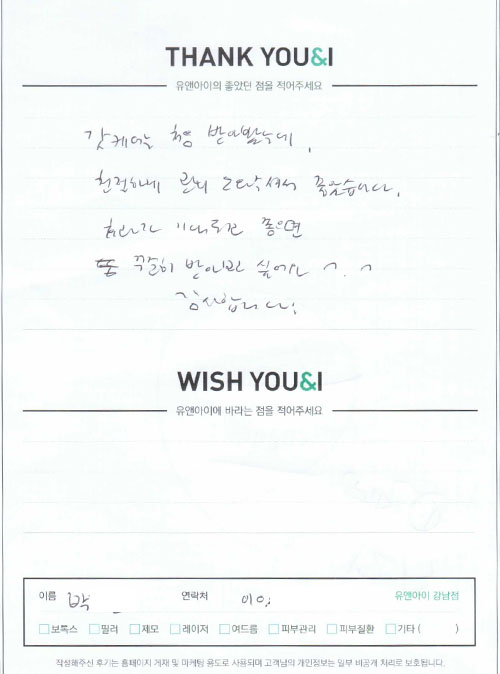 THANK YOU&I
유앤아이의 좋았던 점을 적어주세요
처음 받아봤는데,
친절하게 관리 해주셔서 좋았습니다.
효과가 기대로만 좋으면
꾸준히 받아보고 싶어요 ^.^
감사합니다.
WISH YOU&I
유앤아이에 바라는 점을 적어주세요
이름 박 연락처 010 유앤아이 강남점
보톡스 필러 제모 레이저 여드름 피부관리 피부질환 기타 ( )
작성해주신 후기는 홈페이지 게재 및 마케팅 용도로 사용되며 고객님의 개인정보는 일부 비공개 처리로 보호됩니다.